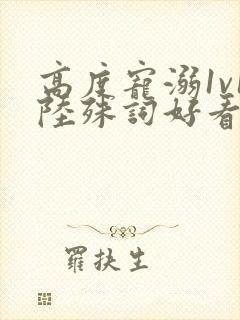 高度寵溺1v1
陸殊詞好看
羅扶生